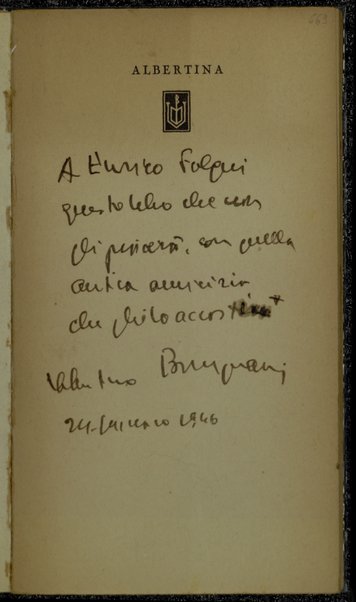 ALBERTINA
A Enrico Falqui
questo libro che non
gli piacerà, con quella
antica amicizia
che glielo
Valentino Bompiani
24 gennaio 1946